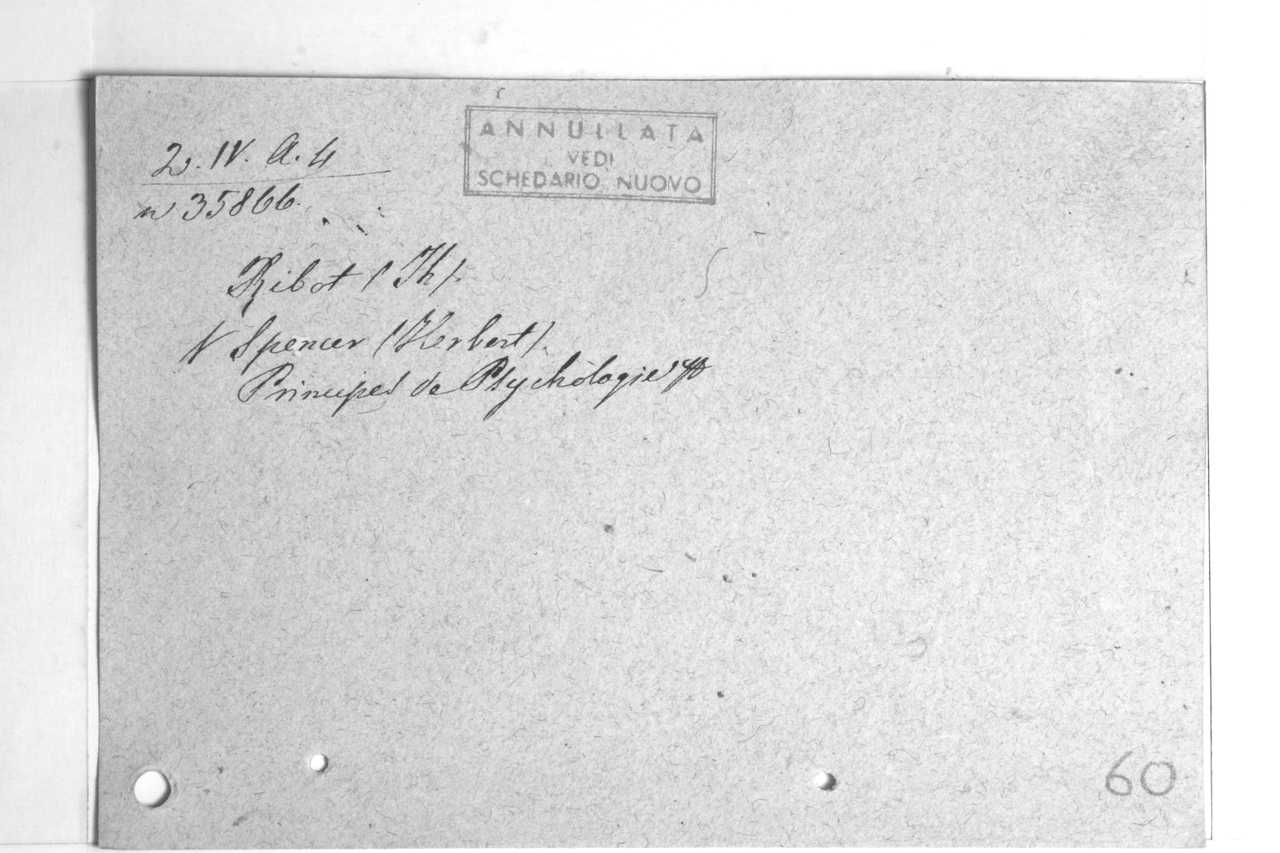 2. IV. A. 4
n 35866.
ANNULLATA
VEDI
SCHEDARIO NUOVO
Ribot (Th).
V Spencer (Herbert).
Principes de Psychologie
60